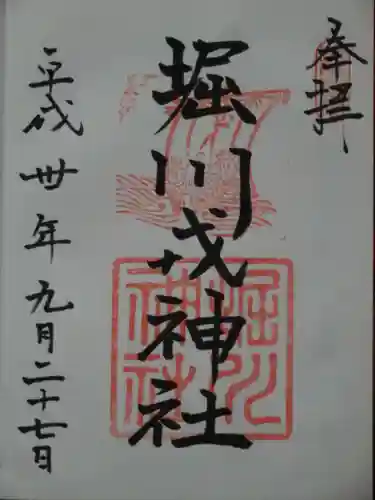 奉拝
堀川戎神社
平成卅年九月二十七日
堀川
神社